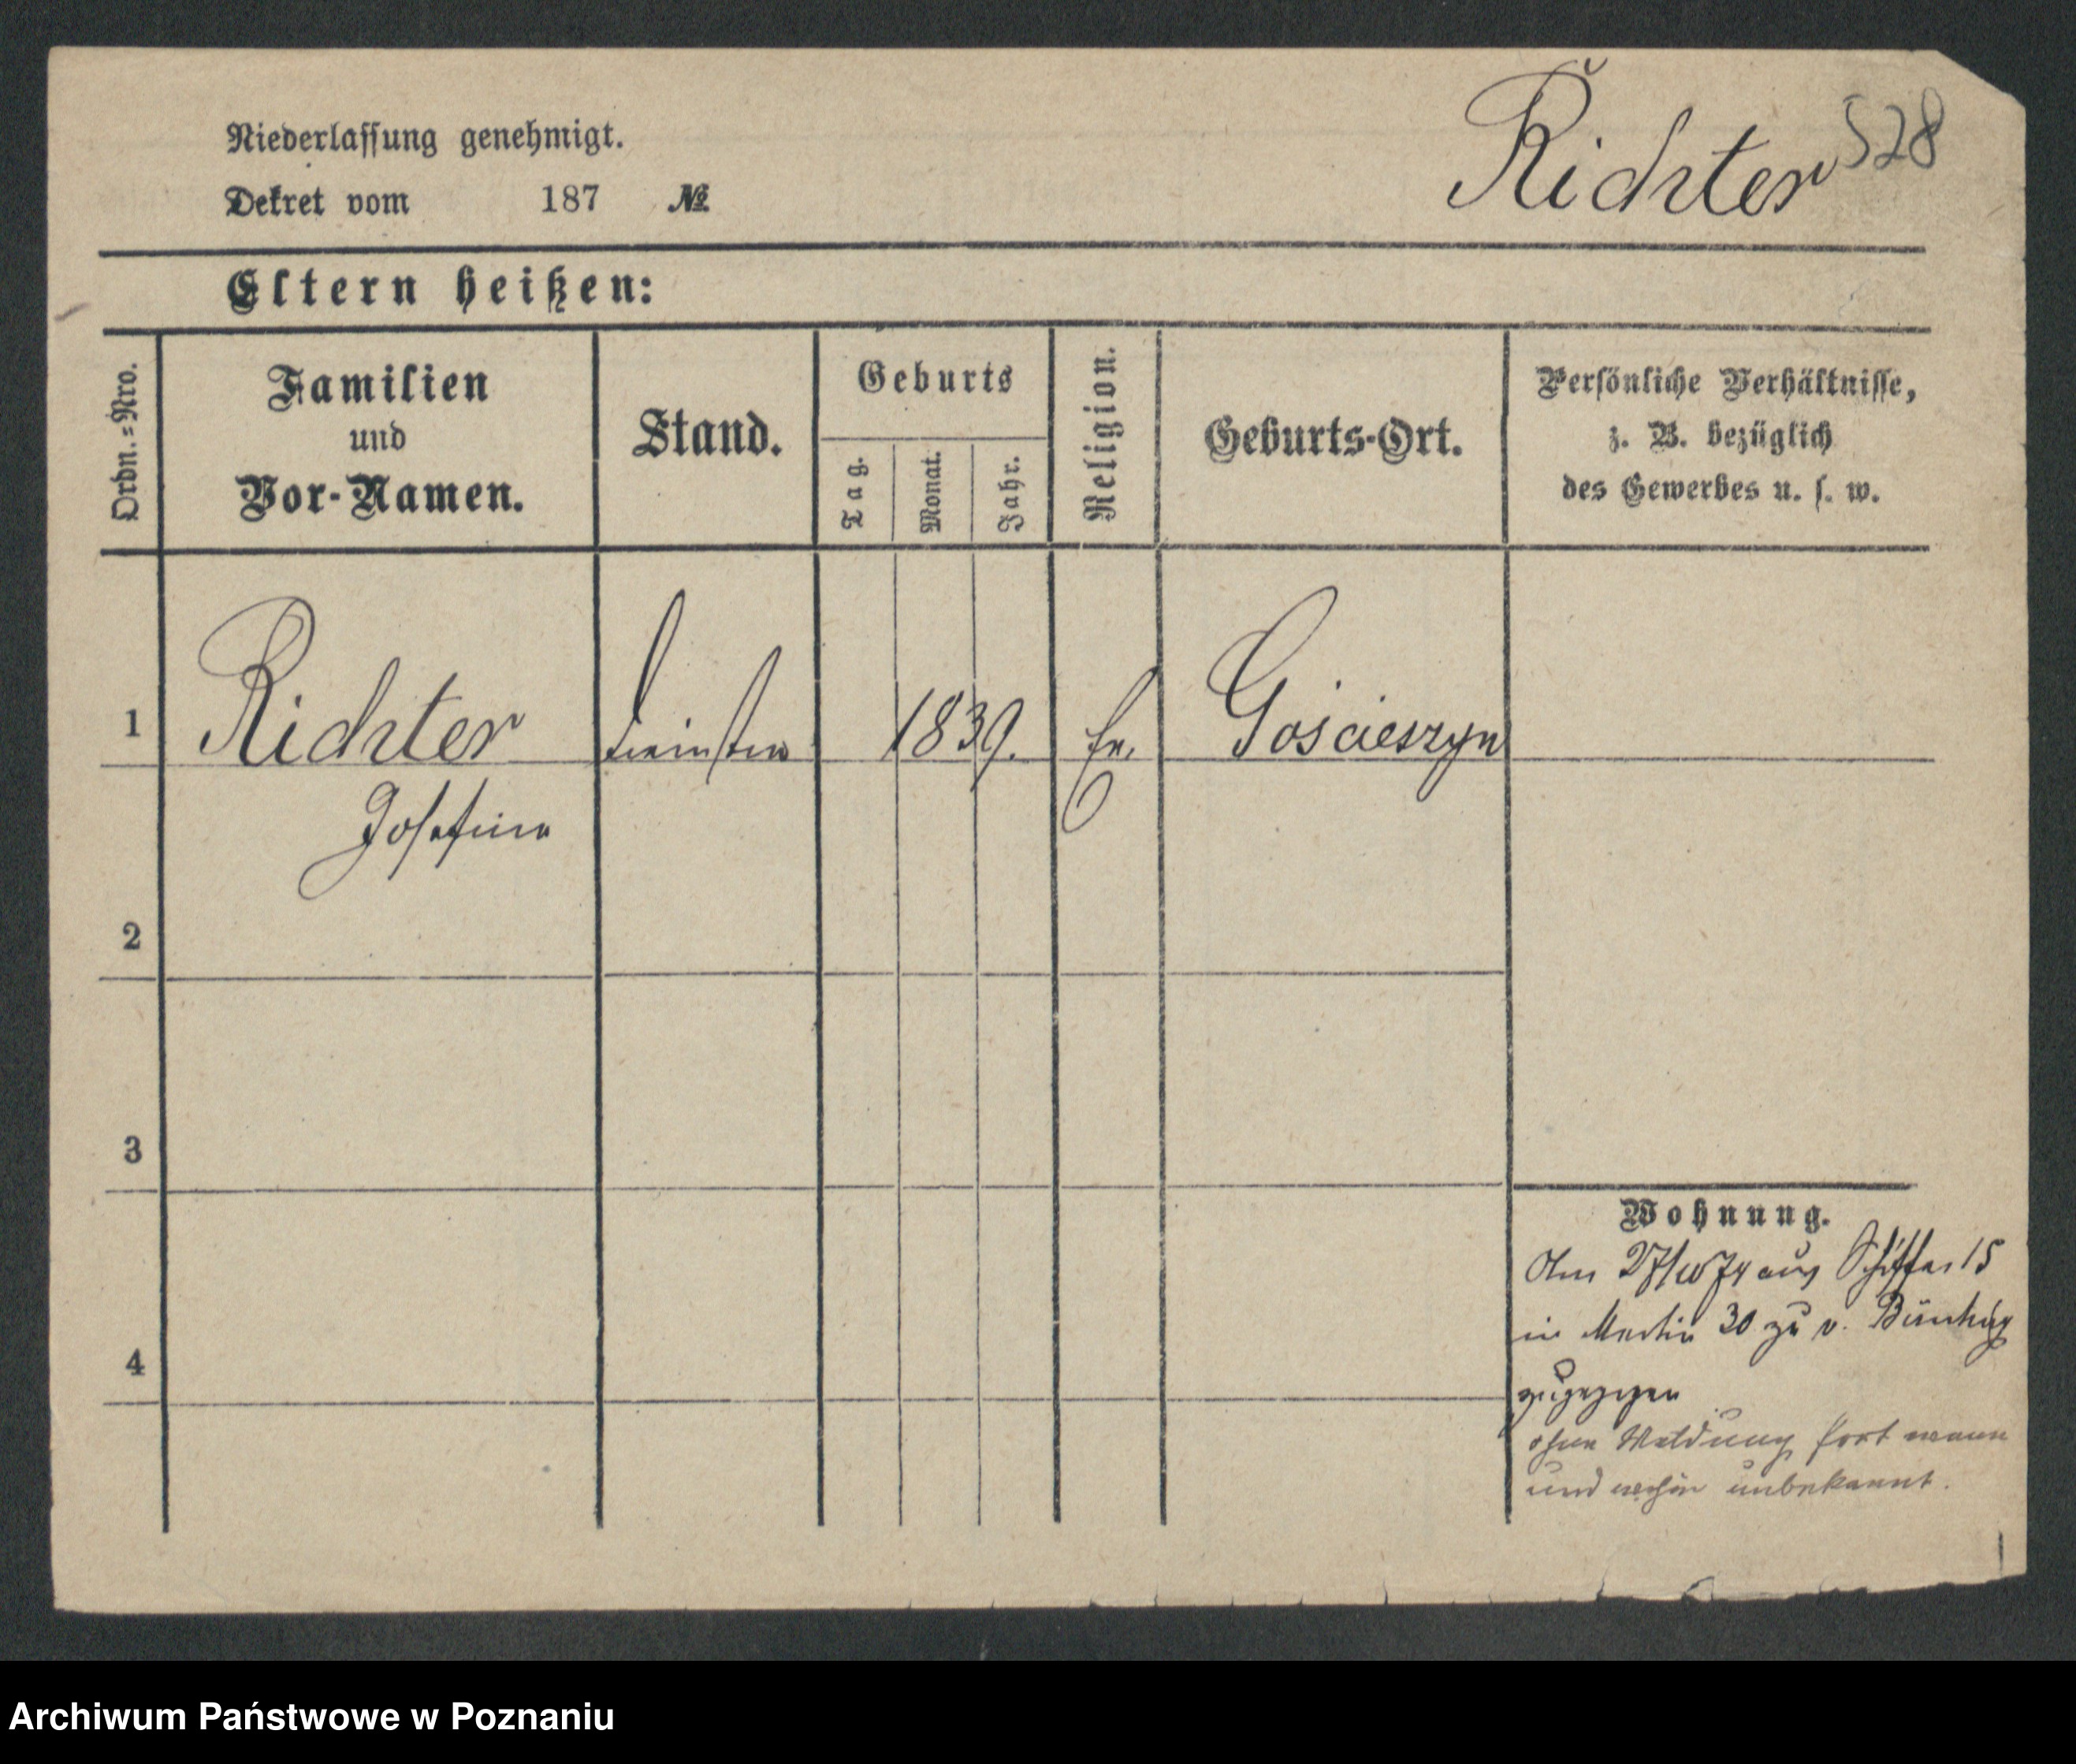 Richter 528
Niederlassung genehmigt.
Dekret vom 187 №
Eltern heißen:
Ordn.=Nro.
Familien
und
Vor-Namen.
Stand.
Geburts
Tag.
Monat.
Jahr.
Religion.
Geburts-Ort.
Persönliche Verhältnisse,
z. B. bezüglich
des Gewerbes u. s. w.
1 Richter 1839. Gościeszyn
Josefine
2
3
4
Wohnung.
Am aus Schiffer 15
in Martin 30 zu v.
zugezogen
ohne Meldung fort wann
und wohin unbekannt.
Archiwum Państwowe w Poznaniu